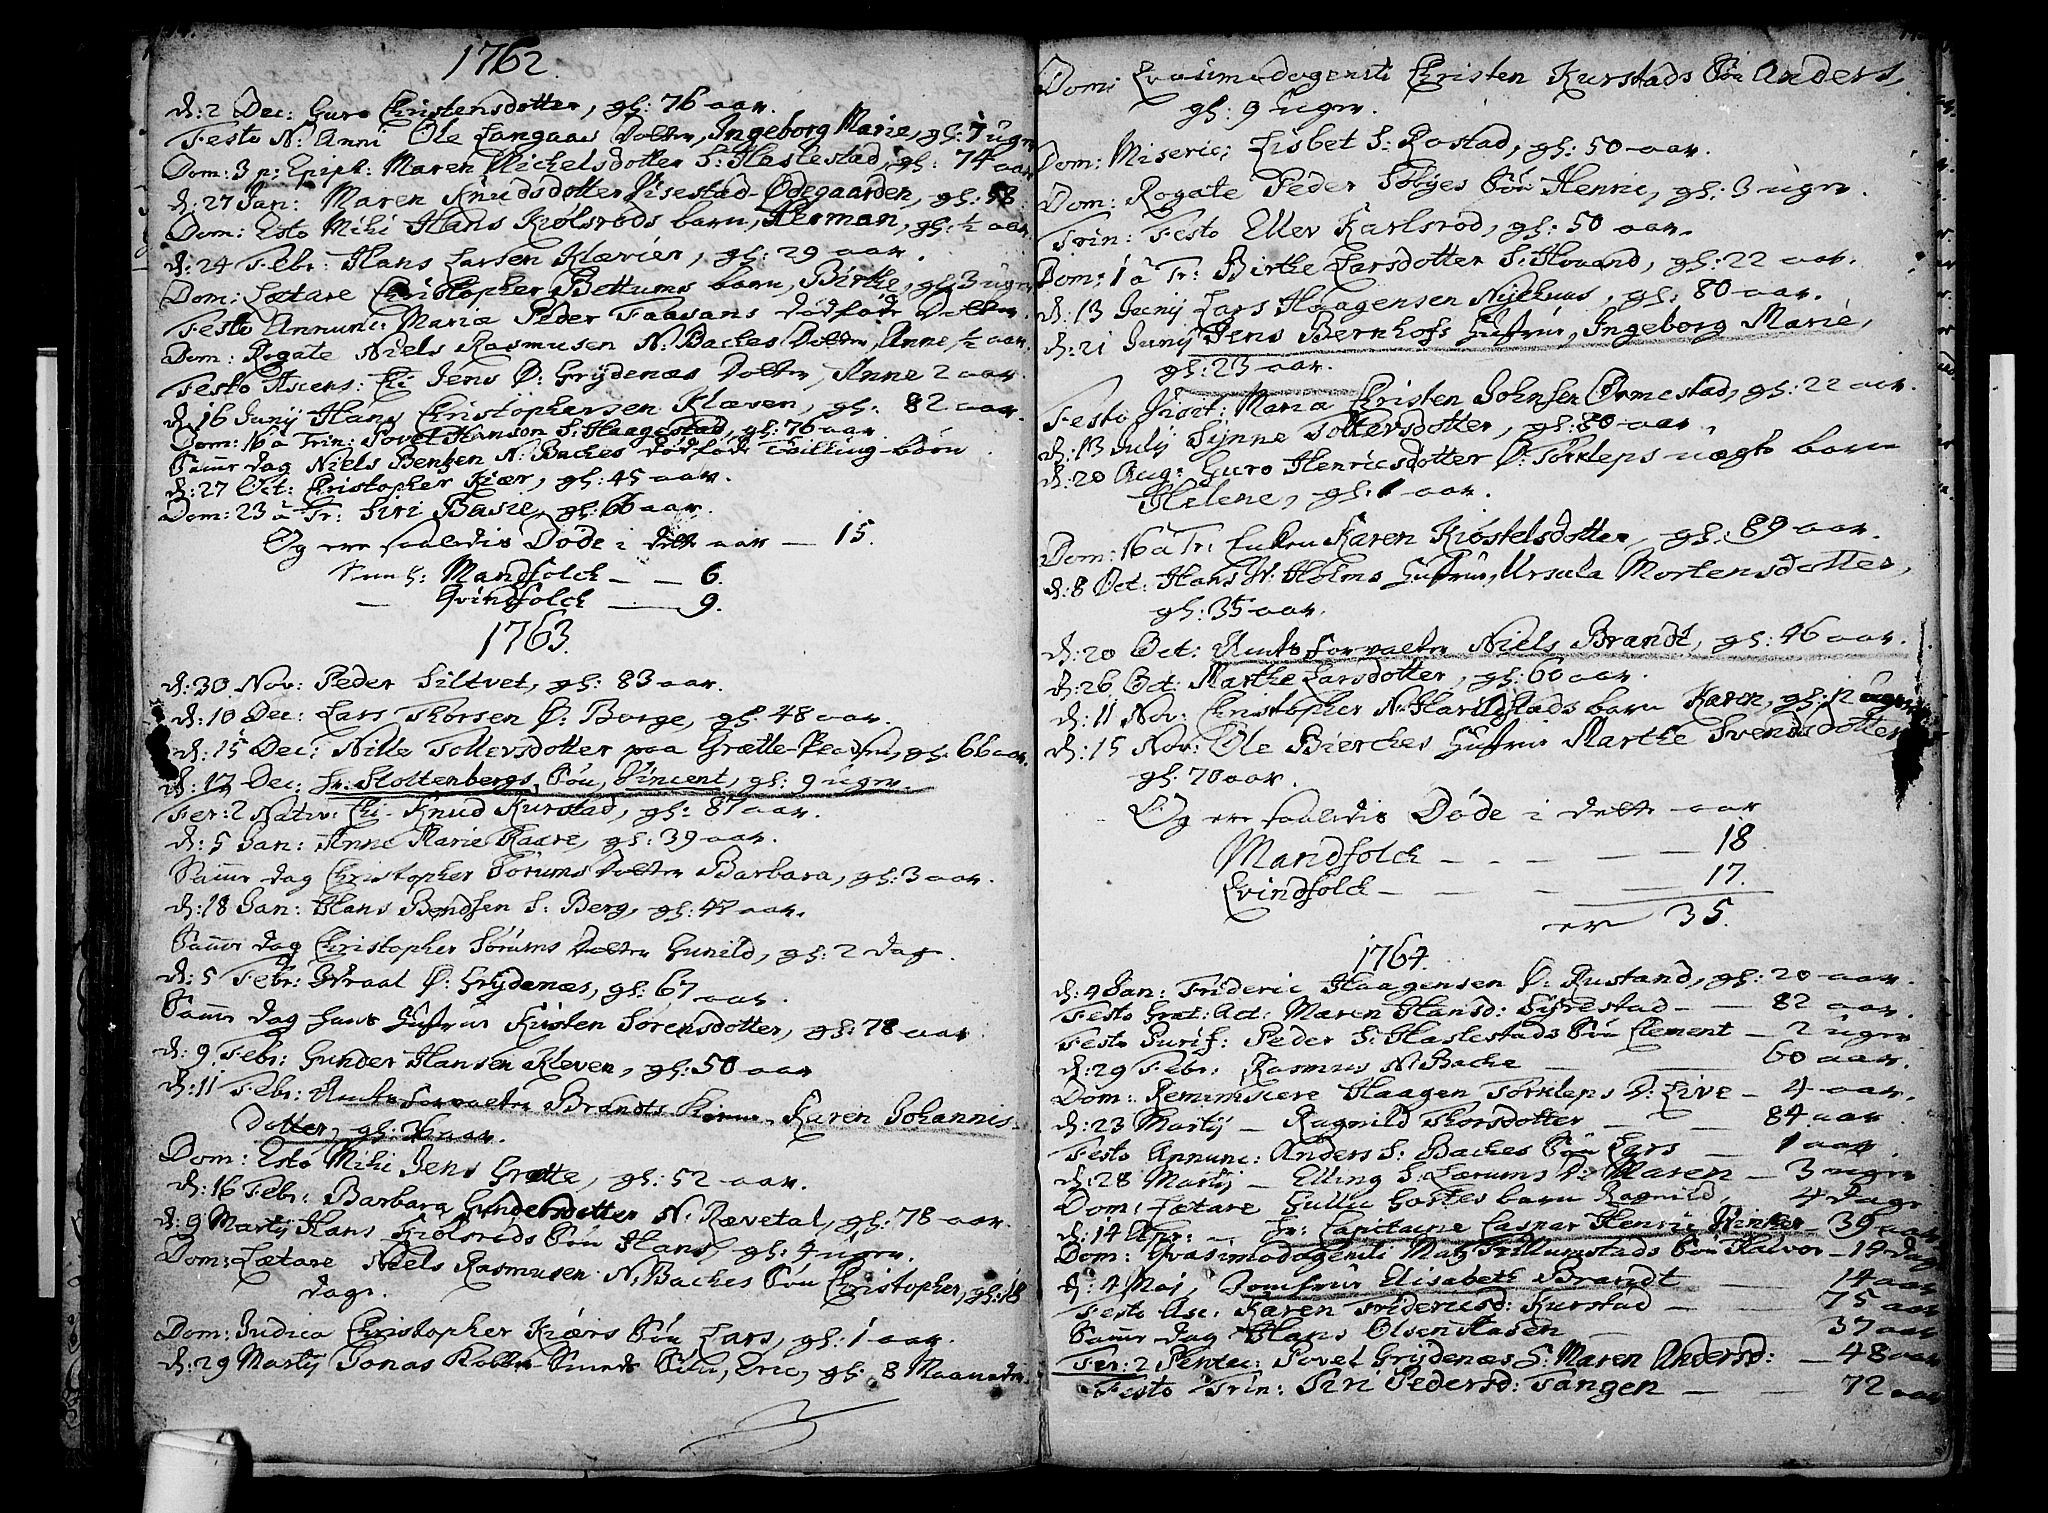 1762.
d: 2 Dec: Guro Christensdotter, gl: 76 aar.
Festo N: Anni Ole Langaas Dotter, Ingeborg Marie, gl: 7 uger
Dom: 3 p: Epiph: Maren Michelsdotter S: Haslestad, gl: 74 aar
d: 27 Jan: Maren Knudsdotter Visestad-Ødegaarden, gl: 58.
Dom: Esto Mihi Hans Kiølsrøds barn, Herman, gl: ½ aar.
d: 24 Febr: Hans Larsen Klevier, gl: 29 aar.
Dom: Lætare Christopher Bettums barn, Birthe, gl: 3 uger
Festo Annunc: Mariæ Peder Faasans dødfødde Dotter.
Dom: Rogate Niels Rasmusen N: Baches Dotter, Anne, ½ aar.
Festo Ascens: Chi Jens Ø: Grydenæs Dotter, Anne 2 aar.
d: 16 Junij Hans Christophersen Klæven, gl: 82 aar.
Dom: 16 a Trin: Povel Hanson S: Haagestad, gl: 76 aar.
Samme dag Niels Bentzen N: Baches dødfødde Tvilling-børn.
d: 27 Oct: Christopher Kiær, gl: 45 aar.
Dom: 23 a Tr: Siri Basie, gl: 66 aar.
Og ere saaledis Døde i dette aar — 15.
Mandfolck — — 6.
— Qvindfolck — 9.
1763.
d: 30 Nov: Peder Siltvet, gl: 83 aar.
d: 10 Dec: Lars Thorsen Ø: Borge, gl: 48 aar.
d: 15 Dec: Nille Tollersdotter paa Grætte-Pladsen, gl: 66 aar.
d: 17 Dec: Hr: Stoltenbergs Søn, Vincent, gl: 9 uger.
Fer: 2 Nativ: Chi Knud Kurstad, gl: 87 aar.
d: 5 Jan: Anne Marie Kaare, gl: 39 aar.
Samme dag Christopher Sørums Dotter Barbara, gl: 3 aar.
d: 18 Jan: Hans Bendsen S: Berg, gl: 47 aar.
Samme dag Christopher Sørums Dotter Gunild, gl: 2 dage.
d: 5 Febr: Ø: Grydenæs, gl: 67 aar.
Samme dag hans Hustrue Kirsten Sørensdotter, gl: 78 aar.
d: 9 Febr: Gunder Hansen Kleven, gl: 50 aar
d: 11 Febr: Amtsforvalter Brandts Karen Johannis-
Dotter, gl: 36 aar.
Dom: Esto Mihi Jens Grætte, gl: 52 aar.
d: 16 Febr: Barbara Gundersdotter N: Rævetal, gl: 78 aar.
d: 9 Martij Hans Kiølsrøds Søn Hans, gl: 4 uger.
Dom: Lætare Niels Rasmusen N: Baches Søn Christopher, gl: 18
dage.
Dom: Judica Christopher Kiærs Søn Lars, gl: 1 aar.
d: 29 Martij Jonas Søn, Eric, gl: 8 Maaneder.
Dom: Qvasimodogeniti Christen Kurstads Søn Anders,
gl: 9 uger.
Dom: Miseric: Lisbet S: Rostad, gl: 50 aar.
Dom: Rogate Peder Søbyes Søn Henric, gl: 3 uger.
Trin: Festo Ellev Karlsrød, gl: 50 aar.
Dom: 1 a Tr: Birthe Larsdotter S: Hvaand, gl: 22 aar.
d: 13 Junij Lars Haagensen Nyehuus, gl: 80 aar.
d: 21 Junij Jens Bernhofs Hustrue, Ingeborg Marie,
gl: 23 aar.
Festo Visit: Mariæ Christen Johnsen Ormestad, gl: 22 aar.
d: 13 Julij Synne Tollersdotter, gl: 80 aar.
d: 20 Aug: Guro Henricsdotter Ø: Torkleps uægte barn
Helene, gl: 1 aar.
Dom: 16 a Tr: Enken Karen Kiøstelsdotter, gl: 89 aar.
d: 8 Oct: Hans W: Holms Hustrue, Ursula Mortensdotter,
gl: 35 aar.
d: 20 Oct: Amtsforvalter Niels Brandt, gl: 46 aar.
d: 26 Oct: Marthe Larsdotter, gl: 60 aar.
d: 11 Nov: Christopher N: Harildstads barn Karen, gl: 12 uger
d: 15 Nov: Ole Bierches Hustrue Marthe Svendsdotter,
gl: 70 aar.
Og ere saaledis Døde i dette aar
Mandfolck — — — — 18.
Qvindfolck — — — — 17.
er 35.
1764.
d: 4 Jan: Frideric Haagensen Ø: Rustand, gl: 20 aar.
Festo Græt: Act: Maren Hansd: Syrestad — 82 aar.
Festo Purif: Peder S: Haslestads Søn Clement — 2 uger
d: 29 Febr: Rasmus N: Bache — — 60 aar.
Dom: Reminiscere Haagen Torkleps D: Live — 4 aar.
d: 23 Martij — Ragnild Thorsdotter — — 84 aar
Festo Annunc: Anders S: Baches Søn Lars — 1 aar
d: 28 Martij — Elling S: Lærums D: Maren — 3 uger
Dom: Lætare Gullu barn Ragnild, 4 dage
d: 14 Apr: — Hr: Capitaine Caspar Henric Winther — 39 aar
Dom: Qvasimodogeniti Søn Halvor — 14 dage
d: 4 Maj, Jomfrue Elisabeth Brandt — 14 aar
Festo Asc: Karen Fridericsd: Kurstad — — 75 aar
Samme dag Hans Olsen Aasen — 37 aar
Fer: 2 Pentec: Povel Grydenæs S: Maren Andersd: — 48 aar
Festo Trin: Siri Pedersd: Tangen — — 72 aar